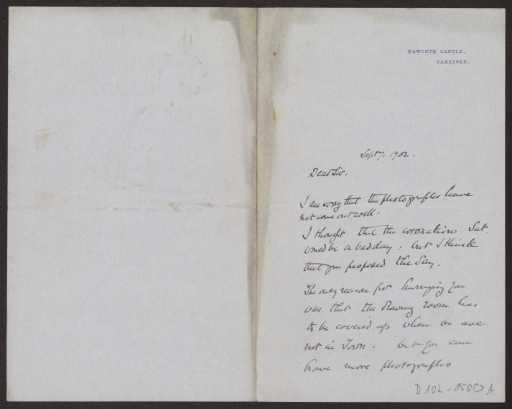 NAWORTH CASTLE,
CARLISLE.
Sept 7. 1902.
Dear Sir.
I am sorry that the photographs have
not come out well.
I thought that the coronation Sat
would be a bad day. but I think
that you proposed the day.
The only reason for hurrying you
was that the Drawing room has
to be covered up when we are
not in Town. but you can
have more photographs